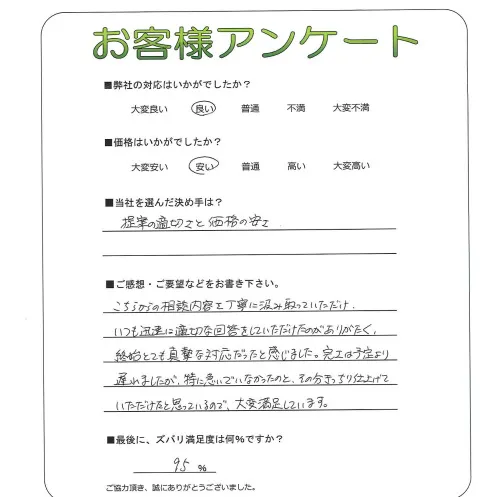 お客様アンケート
■弊社の対応はいかがでしたか?
大変良い 良い 普通 不満 大変不満
■価格はいかがでしたか?
大変安い 安い 普通 高い 大変高い
■当社を選んだ決め手は?
提案の適切さと価格の安さ
■ご感想・ご要望などをお書き下さい。
こちらからの相談内容を丁寧に汲み取っていただけ、
いつも迅速に適切な回答をしていただけたのがありがたく、
終始とても真摯な対応だったと感じました。完工は予定より
遅れましたが、特に急いでいなかったのと、その分きっちり仕上げて
いただけたと思っているので、大変満足しています。
■最後に、ズバリ満足度は何%ですか?
95 %
ご協力頂き、誠にありがとうございました。